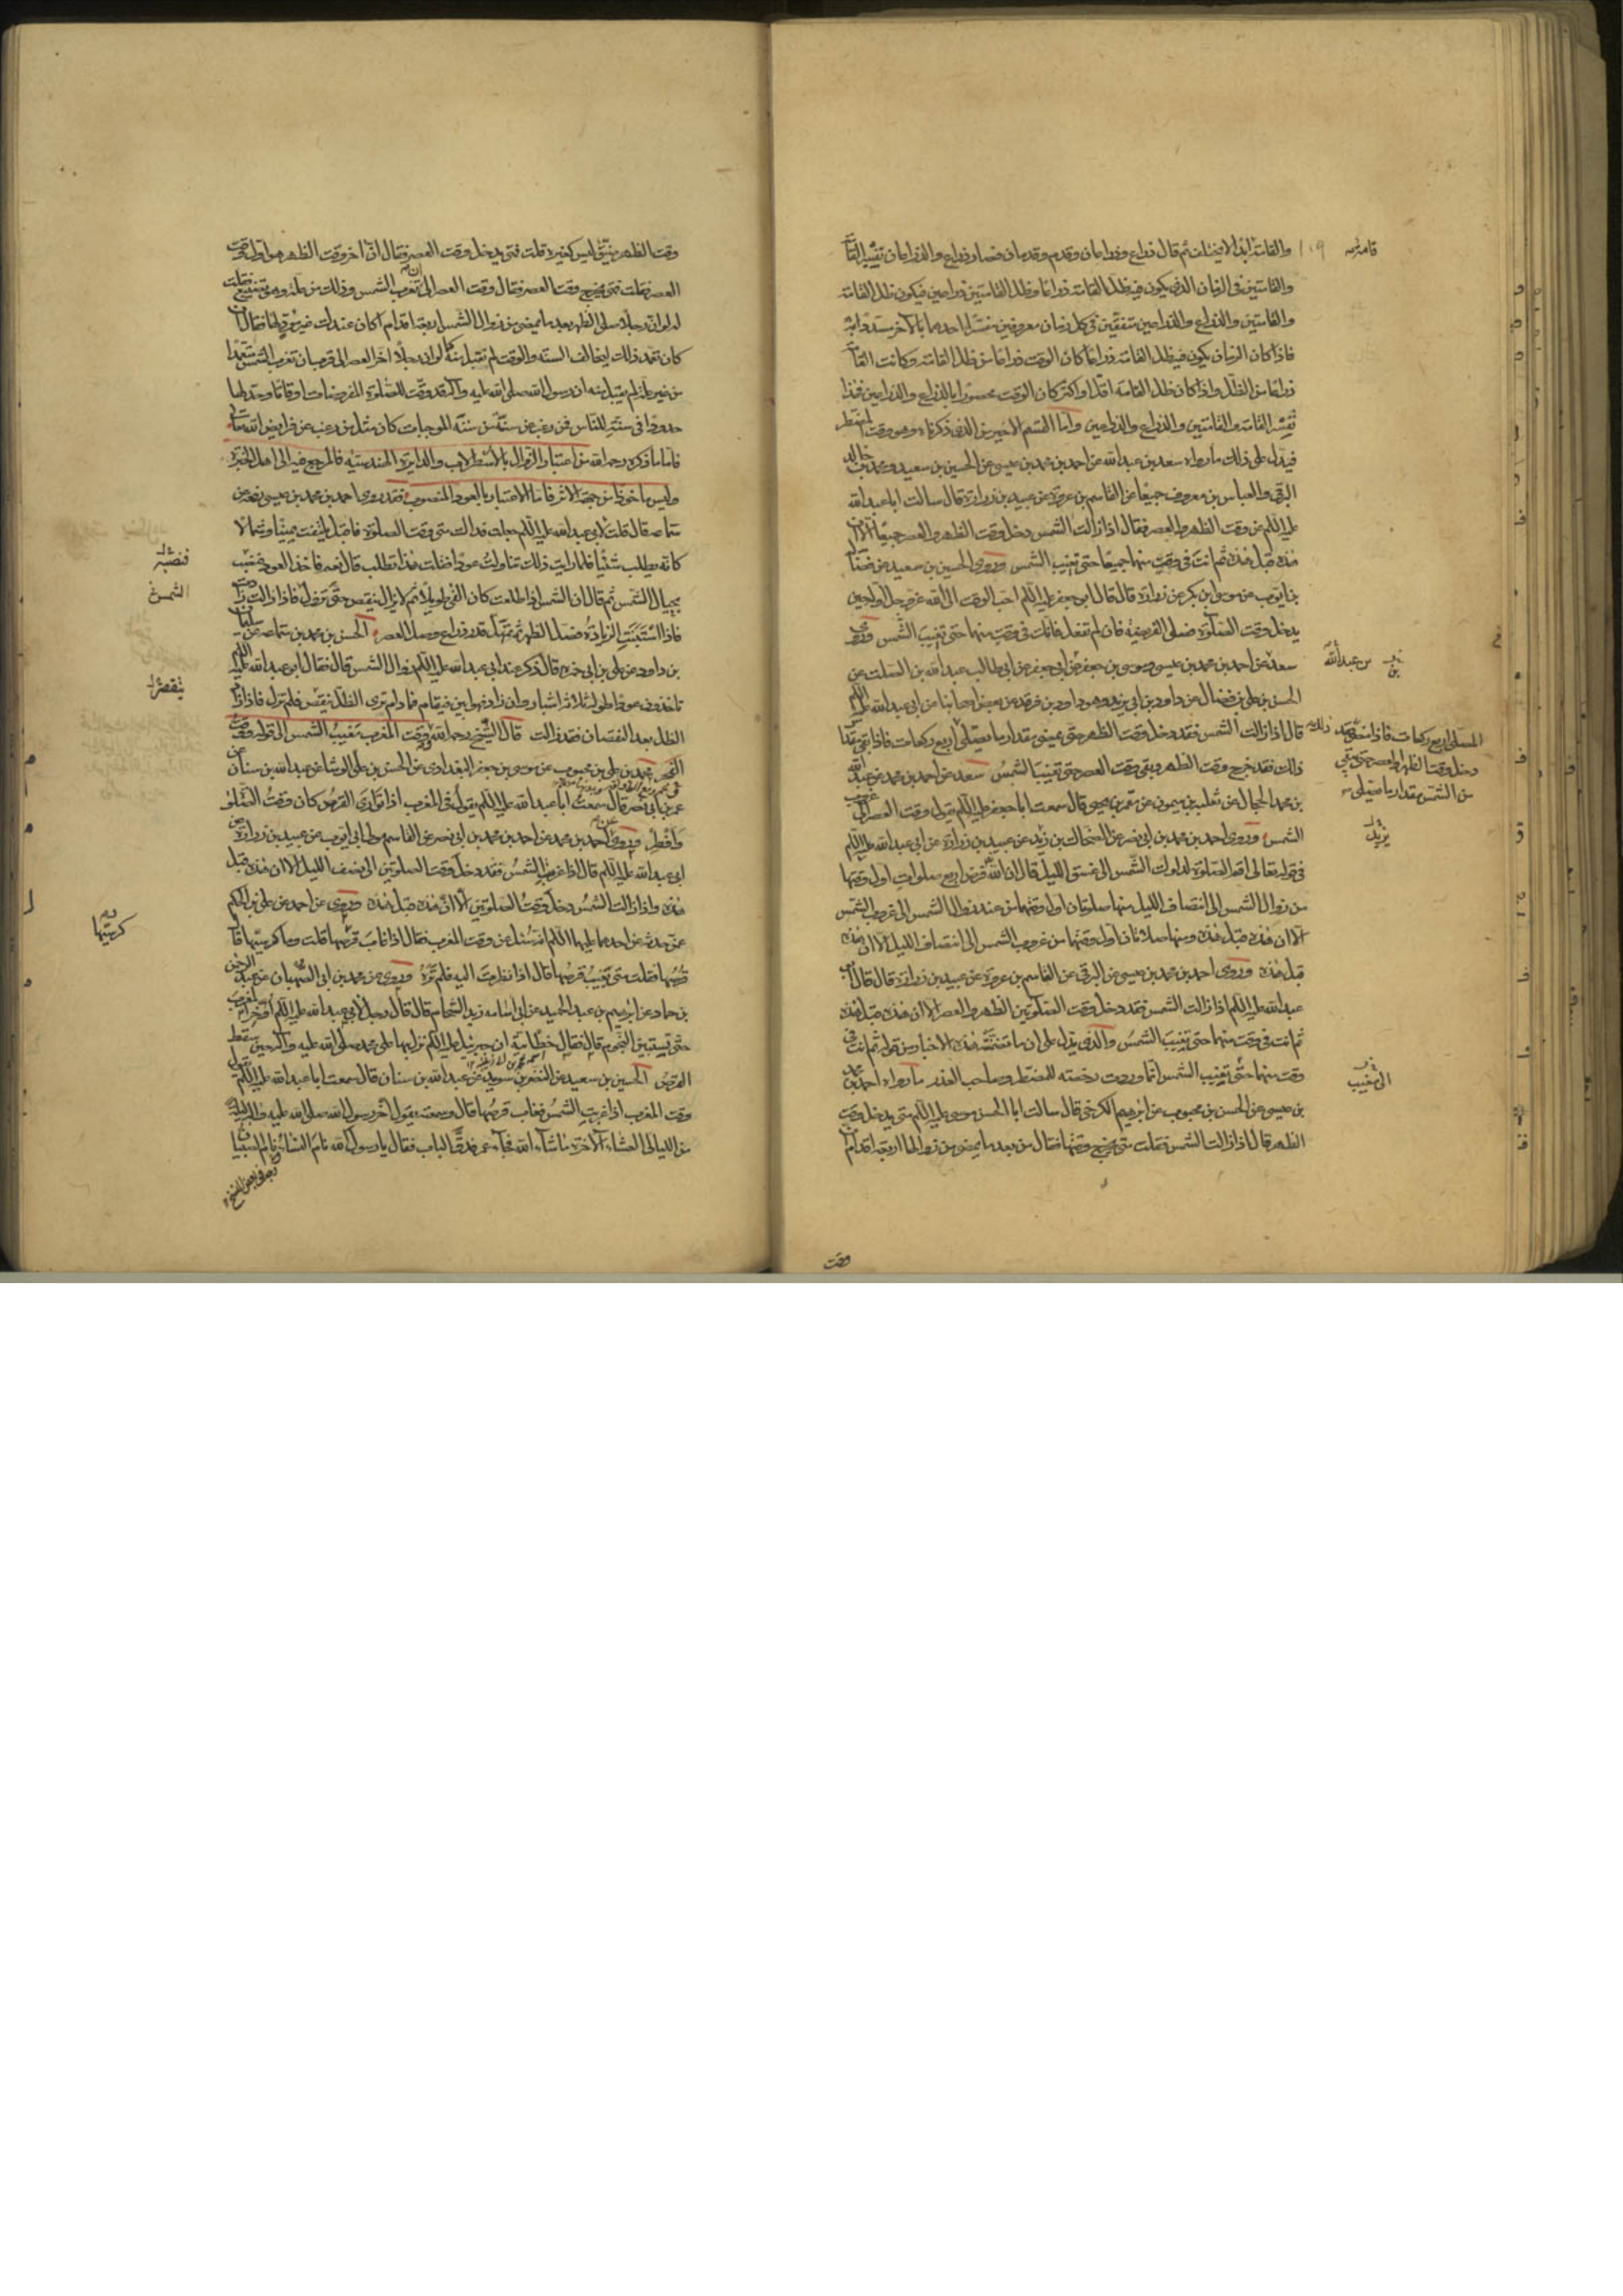 والقامة ابدا لا يختلف ثم قال ذراع وذراعان وقدم وقدمان فصار ذراع والذراعان تفسير القامة
والقامتين في الزمان الذي يكون فيه ظل القامة ذراعا وظل القامتين ذراعين فيكون ظل القامة
والقامتين والذراع والذراعين متفقين في كل زمان معروفين مفسرا احدهما بالآخر مسددا به
فاذا كان الزمان يكون فيه ظل القامة ذراعا كان الوقت ذراعا من ظل القامة وكانت القامة
ذراعا من الظل واذا كان ظل القامة اقل او اكثر كان الوقت محصورا بالذراع والذراعين فهذا
تفسير القامة والقامتين والذراع والذراعين واما القسم الاخير من الذي ذكرناه وهو وقت المضطر
فيدل على ذلك ما رواه سعد بن عبد الله عن احمد بن محمد بن عيسى عن الحسين بن سعيد ومحمد بن خالد
البرقي والعباس بن معروف جميعا عن القاسم بن عروة عن عبيد بن زرارة قال سالت ابا عبد الله
عليه السلام عن وقت الظهر والعصر فقال اذا زالت الشمس دخل وقت الظهر والعصر جميعا الا ان
هذه قبل هذه ثم انت في وقت منهما جميعا حتى تغيب الشمس وروى الحسين بن سعيد عن فضالة
بن ايوب عن موسى بن بكر عن زرارة قال قال ابو جعفر عليه السلام احب الوقت الى الله عز وجل اوله حين
يدخل وقت الصلوة فصل الفريضة فان لم تفعل فانك في وقت منهما حتى تغيب الشمس وروى
سعد عن احمد بن محمد بن عيسى وموسى بن جعفر عن ابي جعفر عن ابي طالب عبد الله بن الصلت عن
الحسن بن علي بن فضال عن داود بن ابي يزيد وهو داود بن فرقد عن بعض اصحابنا عن ابي عبد الله عليه السلام
قال اذا زالت الشمس فقد دخل وقت الظهر حتى يمضي مقدار ما يصلي اربع ركعات فاذا بقي مقدار
ذلك فقد خرج وقت الظهر وبقي وقت العصر حتى تغيب الشمس سعد عن احمد بن محمد عن عبد الله
بن محمد الحجال عن ثعلبة بن ميمون عن معمر بن يحيى قال سمعت ابا جعفر عليه السلام يقول وقت العصر الى غروب
الشمس وروى احمد بن محمد بن ابي نصر عن الضحاك بن زيد عن عبيد بن زرارة عن ابي عبد الله عليه السلام
في قوله تعالى اقم الصلوة لدلوك الشمس الى غسق الليل قال ان الله فرض اربع صلوات اول وقتها
من زوال الشمس الى انتصاف الليل منها صلوتان اول وقتهما من عند زوال الشمس الى غروب الشمس
الا ان هذه قبل هذه ومنها صلاتان اول وقتهما من غروب الشمس الى انتصاف الليل الا ان هذه
قبل هذه وروى احمد بن محمد بن عيسى عن البرقي عن القاسم بن عروة عن عبيد بن زرارة قال قال ابو
عبد الله عليه السلام اذا زالت الشمس فقد دخل وقت الصلوتين الظهر والعصر الا ان هذه قبل هذه
ثم انت في وقت منهما حتى تغيب الشمس والذي يدل على ان ما تضمنته هذه الاخبار من قوله ثم انت في
وقت منهما حتى تغيب الشمس انما وردت رخصة للمضطر وصاحب العذر ما رواه احمد بن محمد
بن عيسى عن الحسن بن محبوب عن ابرهيم الكرخي قال سالت ابا الحسن موسى عليه السلام متى يدخل وقت
الظهر قال اذا زالت الشمس فقلت متى يخرج وقتها فقال من بعد ما يمضي من زوالها اربعة اقدام ان
قامة
١٠٩
بن عبد الله
المصلي اربع ركعات فاذا مضى ذلك فقد
دخل وقت الظهر والعصر حتى يبقى
من الشمس مقدار ما يصلي
يزيد
الى مغيب
وقت
وقت الظهر ضيق ليس كغيره قلت فمتى يدخل وقت العصر فقال ان اخر وقت الظهر هو اول وقت
العصر فقلت فمتى يخرج وقت العصر فقال وقت العصر الى ان تغرب الشمس وذلك من علة وهو تضييع فقلت
له لو ان رجلا صلى الظهر بعد ما يمضي من زوال الشمس اربعة اقدام اكان عندك غير مؤد لها فقال ان
كان تعمد ذلك ليخالف السنة والوقت لم تقبل منه كما لو ان رجلا اخر العصر الى قرب ان تغرب الشمس متعمدا
من غير علة لم يقبل منه ان رسول الله صلى الله عليه وآله قد وقت للصلوة المفروضات اوقاتا وحد لها
حدودا في سنته للناس فمن رغب عن سنة من سننه الموجبات كان مثل من رغب عن فرايض الله تعالى
فاما ما ذكره رحمه الله من اعتبار الزوال بالاسطرلاب والدايرة الهندسية فالمرجع فيه الى اهل الخبرة
وليس ماخوذا من جهة الاثر فاما الاعتبار بالعود المنصوب فقد روى احمد بن محمد بن عيسى رفعه عن
سماعة قال قلت لابي عبد الله عليه السلام جعلت فداك متى وقت الصلوة فاقبل يلتفت يمينا وشمالا
كانه يطلب شيئا فلما رايت ذلك تناولت عودا فقلت هذا تطلب قال نعم فاخذ العود فنصب
بحيال الشمس ثم قال ان الشمس اذا طلعت كان الفي طويلا ثم لا يزال ينقص حتى تزول فاذا زالت زاد
فاذا استبنت الزيادة فصل الظهر ثم تمهل قدر ذراع وصل العصر الحسن بن محمد بن سماعة عن سليمان
بن داود عن علي بن ابي حمزه قال ذكر عند ابي عبد الله عليه السلام زوال الشمس قال فقال ابو عبد الله عليه السلام
تاخذون عودا طوله ثلاثة اشبار وان زاد فهو ابين فيقام فما دام ترى الظل ينقص فلم تزل فاذا زاد
الظل بعد النقصان فقد زالت قال الشيخ رحمه الله ووقت المغرب مغيب الشمس الى قوله ووقت
الفجر محمد بن علي بن محبوب عن موسى بن جعفر البغدادي عن الحسن بن علي الوشا عن عبد الله بن سنان عن
عمر بن ابي نصر قال سمعت ابا عبد الله عليه السلام يقول في المغرب اذا توارى القرص كان وقت الصلوة
وافطر وروى احمد بن محمد عن احمد بن محمد بن ابي نصر عن القاسم مولى ابي ايوب عن عبيد بن زرارة عن
ابي عبد الله عليه السلام قال اذا غربت الشمس فقد دخل وقت الصلوتين الى نصف الليل الا ان هذه قبل
هذه واذا زالت الشمس دخل وقت الصلوتين الا ان هذه قبل هذه وروى عن احمد عن علي بن الحكم
عمن حدثه عن احدهما عليهما السلام انه سئل عن وقت المغرب فقال اذا غاب كرسيها قلت وما كرسيها قال
قرصها فقلت متى تغيب قرصها قال اذا نظرت اليه فلم تره وروى عن محمد بن ابي الصهبان عن عبد الرحمن
بن حماد عن ابرهيم بن عبد الحميد عن ابي اسامه زيد الشحام قال قال رجل لابي عبد الله عليه السلام اؤخر المغرب
حتى تستبين النجوم قال فقال خطابية ان جبرئيل عليه السلام نزل بها على محمد صلى الله عليه وآله حين سقط
القرص الحسين بن سعيد عن النضر بن سويد عن عبد الله بن سنان قال سمعت ابا عبد الله عليه السلام يقول
وقت المغرب اذا غربت الشمس فغاب قرصها قال وسمعته يقول اخر رسول الله صلى الله عليه وآله ليلة
من الليالي العشاء الآخرة ما شاء الله فجاء عمر فدق الباب فقال يا رسول الله نام النساء نام الصبيان
فنصبه
الشمس
ينقص
كرسيها